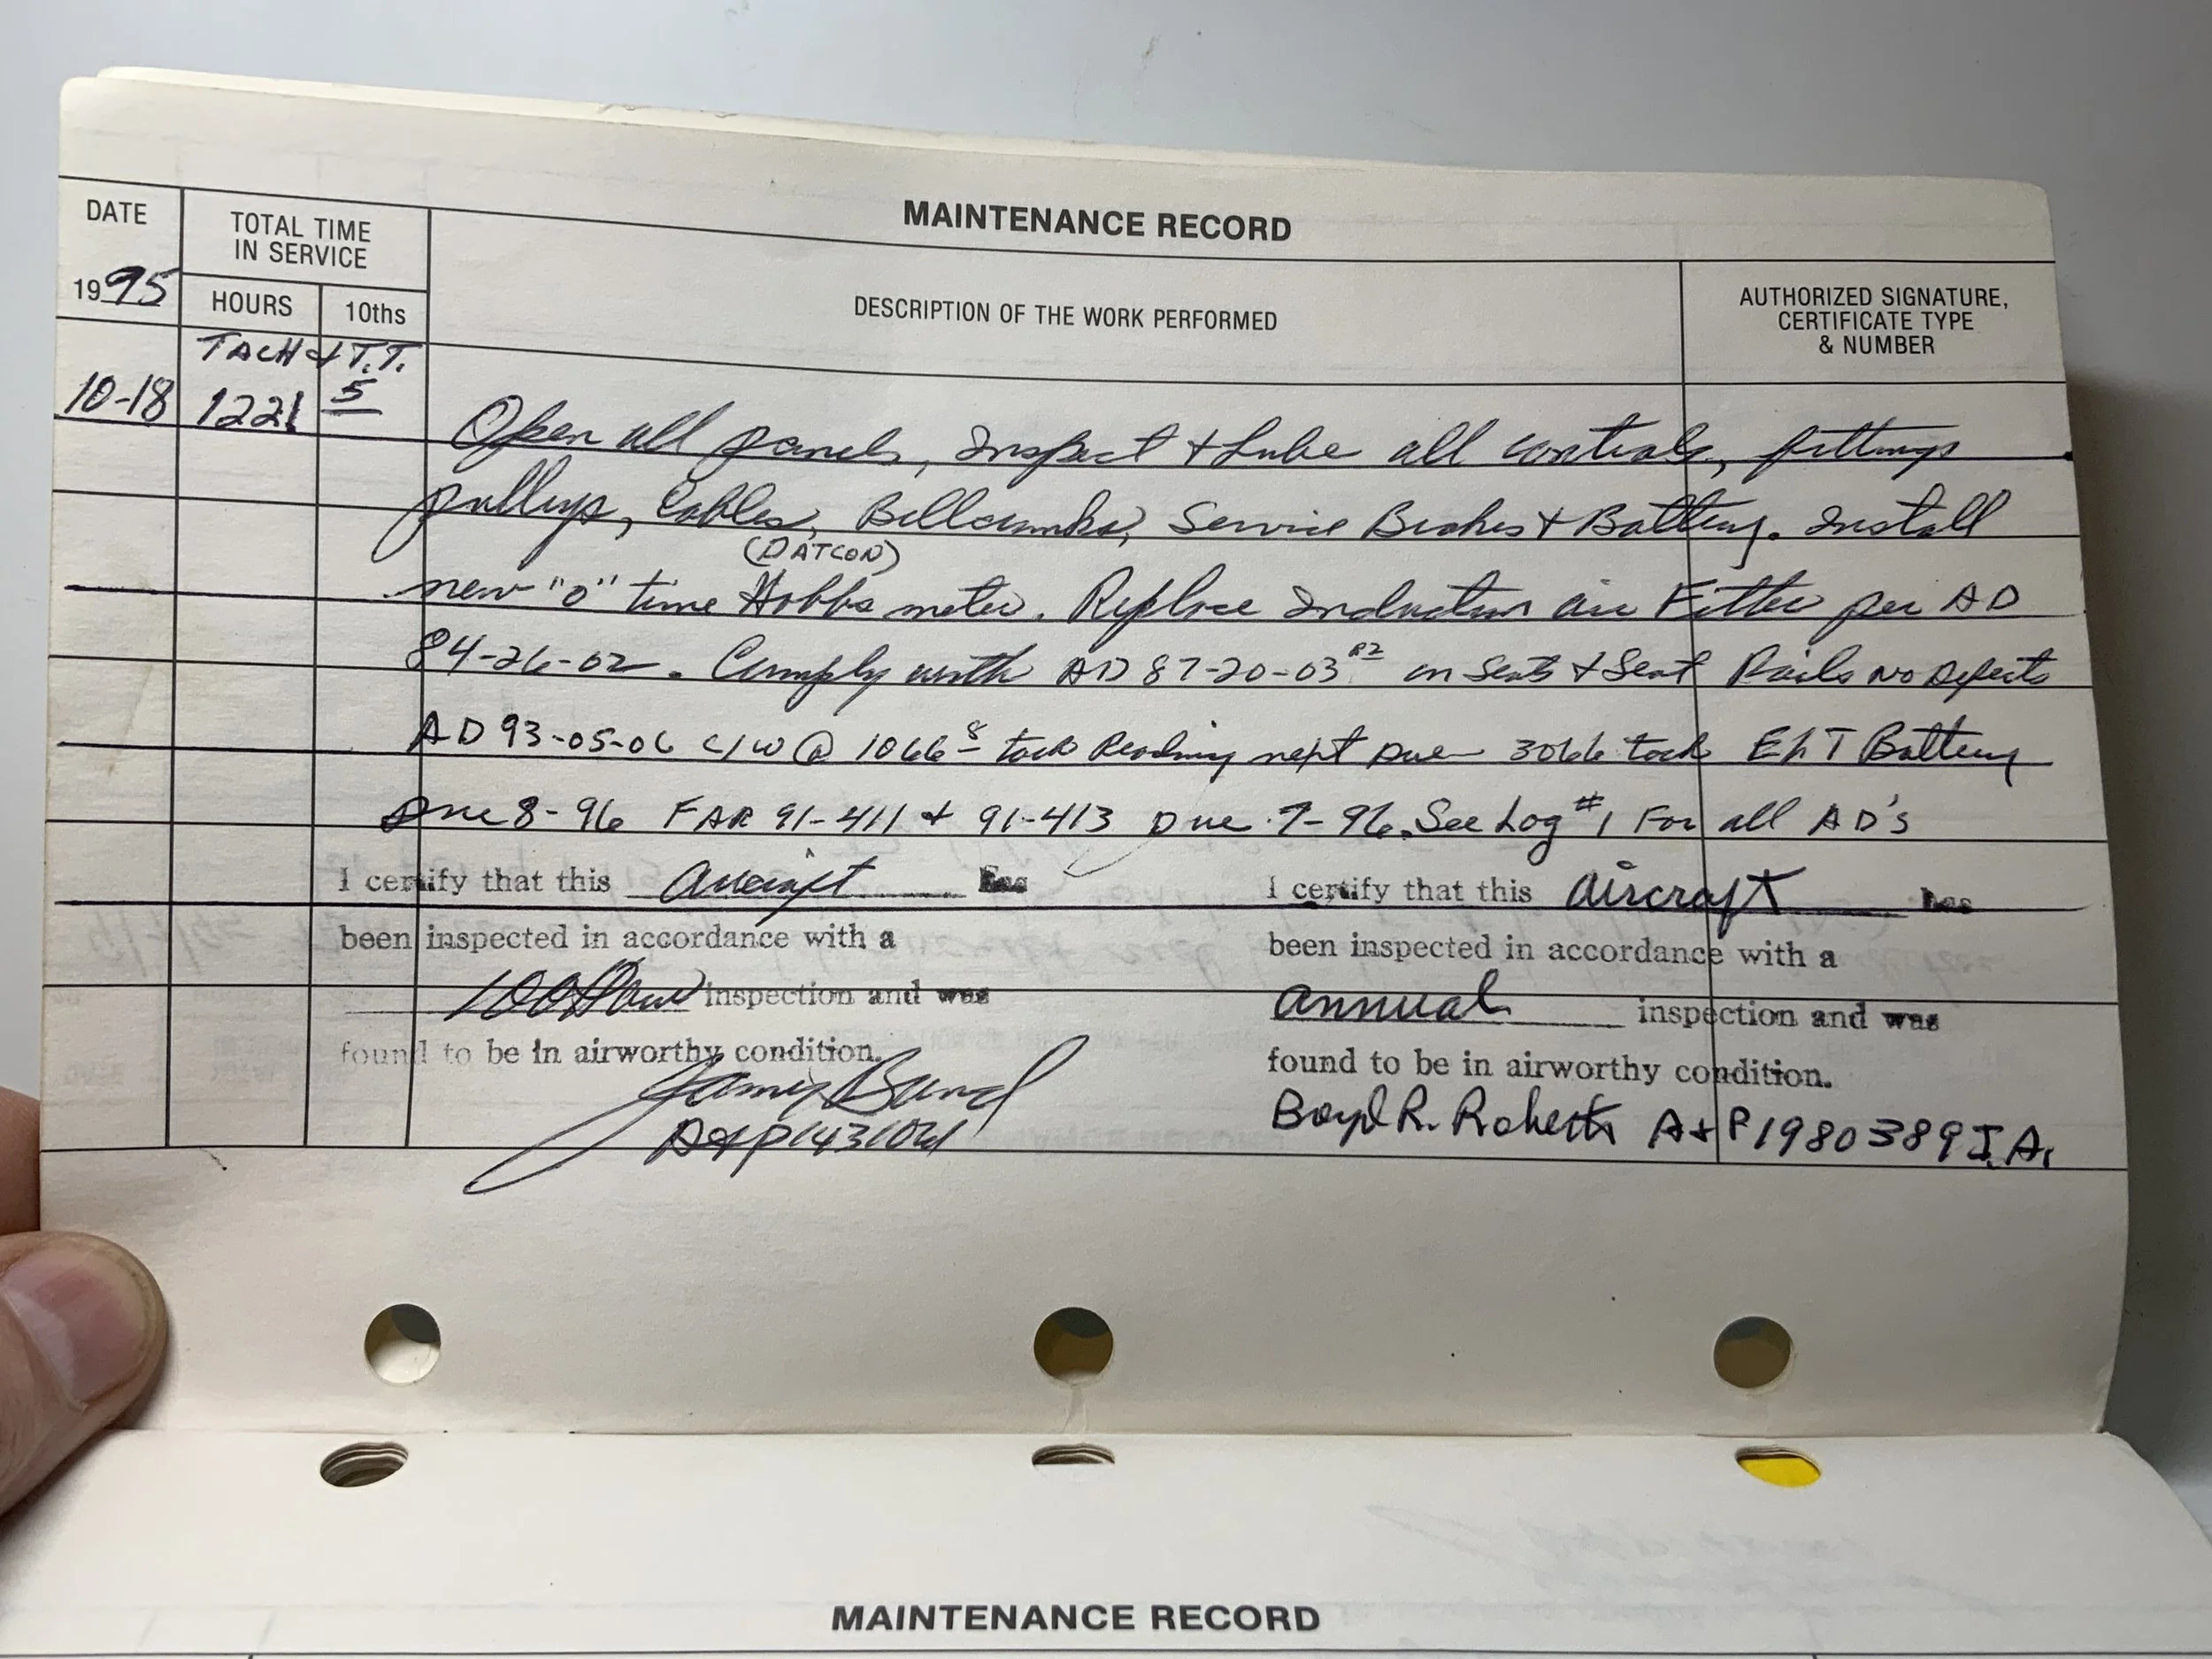 MAINTENANCE RECORD
DATE
TOTAL TIME
IN SERVICE
1995
HOURS
10ths
DESCRIPTION OF THE WORK PERFORMED
AUTHORIZED SIGNATURE,
CERTIFICATE TYPE
& NUMBER
TACH & T.T.
10-18 1221 5
Open all panels, Inspect & Lube all controls, fittings
pulleys, Cables, Bellcranks, Service Brakes & Battery. Install
(DATCON)
new "0" time Hobbs meter. Replace Induction air Filter per AD
84-26-02. Comply with AD 87-20-03 R2 on Seats & Seat Rails No Defects
AD 93-05-06 C/W @ 1066 8 tach Reading next Due 3066 tach ELT Battery
Due 8-96 FAR 91-411 & 91-413 Due 7-96. See Log #1 For all AD's
I certify that this aircraft has
been inspected in accordance with a
100 Hour inspection and was
found to be in airworthy condition.
A&P
I certify that this aircraft has
been inspected in accordance with a
annual inspection and was
found to be in airworthy condition.
Boyd R. Roberts A&P 1980389 I.A.
MAINTENANCE RECORD